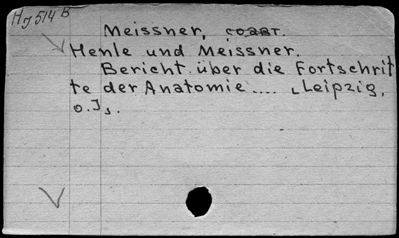 Hg 514 B
Meissner, соавт.
Henle und Meissner.
Bericht über die Fortschrit
te der Anatomie.... [Leipzig,
o.J].